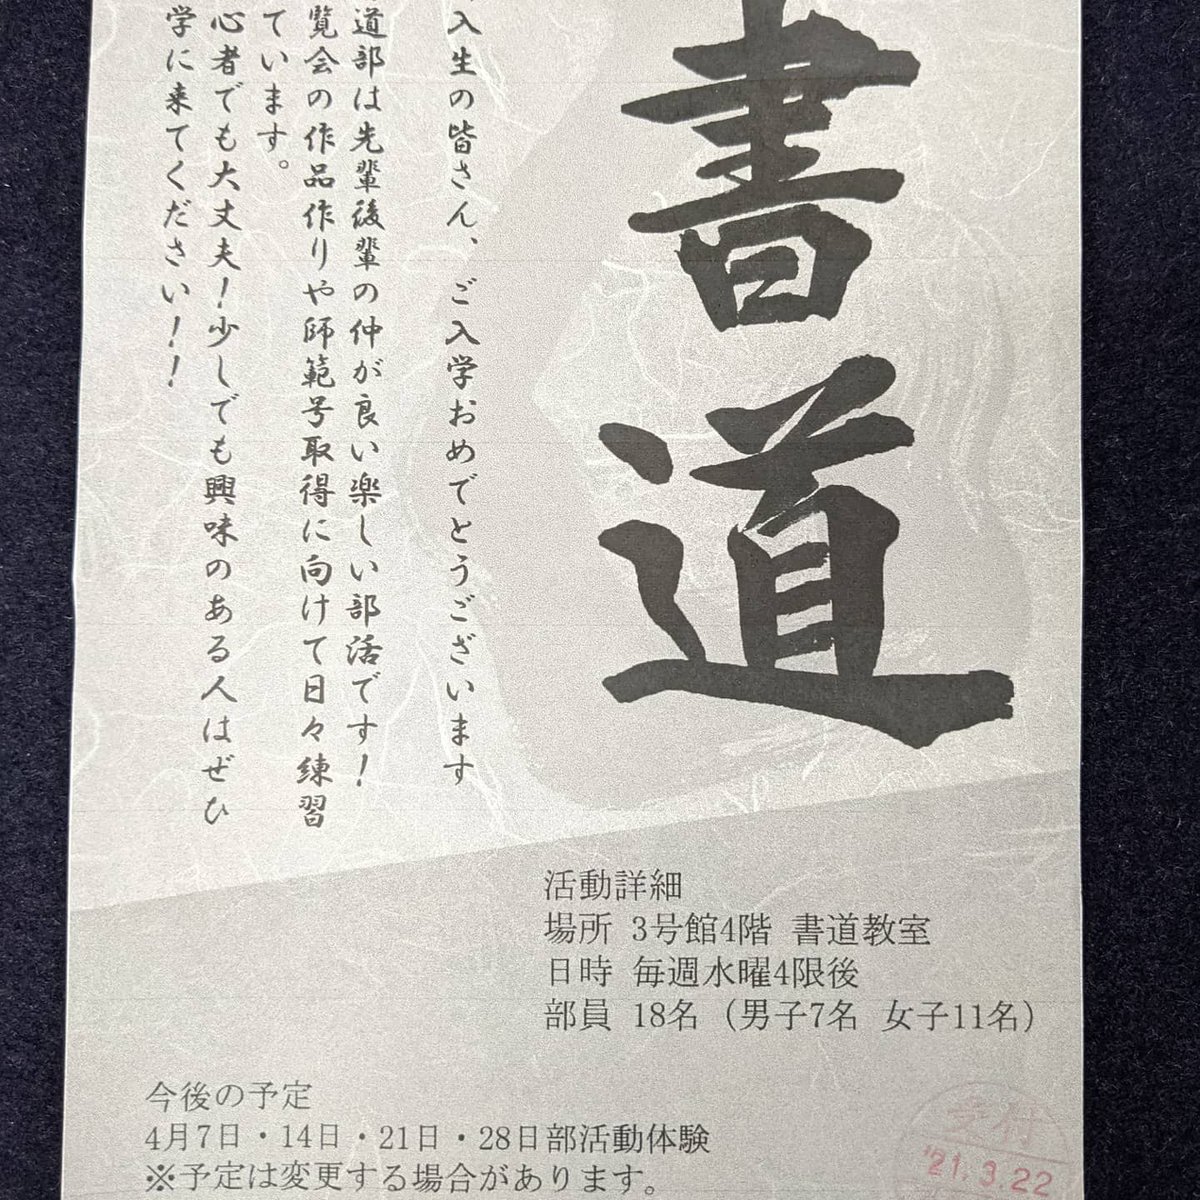 書道
入生の皆さん、ご入学おめでとうございます
道部は先輩後輩の仲が良い楽しい部活です!
覧会の作品作りや師範号取得に向けて日々練習
ています。
心者でも大丈夫!少しでも興味のある人はぜひ
学に来てください!!
活動詳細
場所 3号館4階 書道教室
日時 毎週水曜4限後
部員 18名 (男子7名 女子11名)
今後の予定
4月7日・14日・21日・28日部活動体験
※予定は変更する場合があります。
受付
'21.3.22